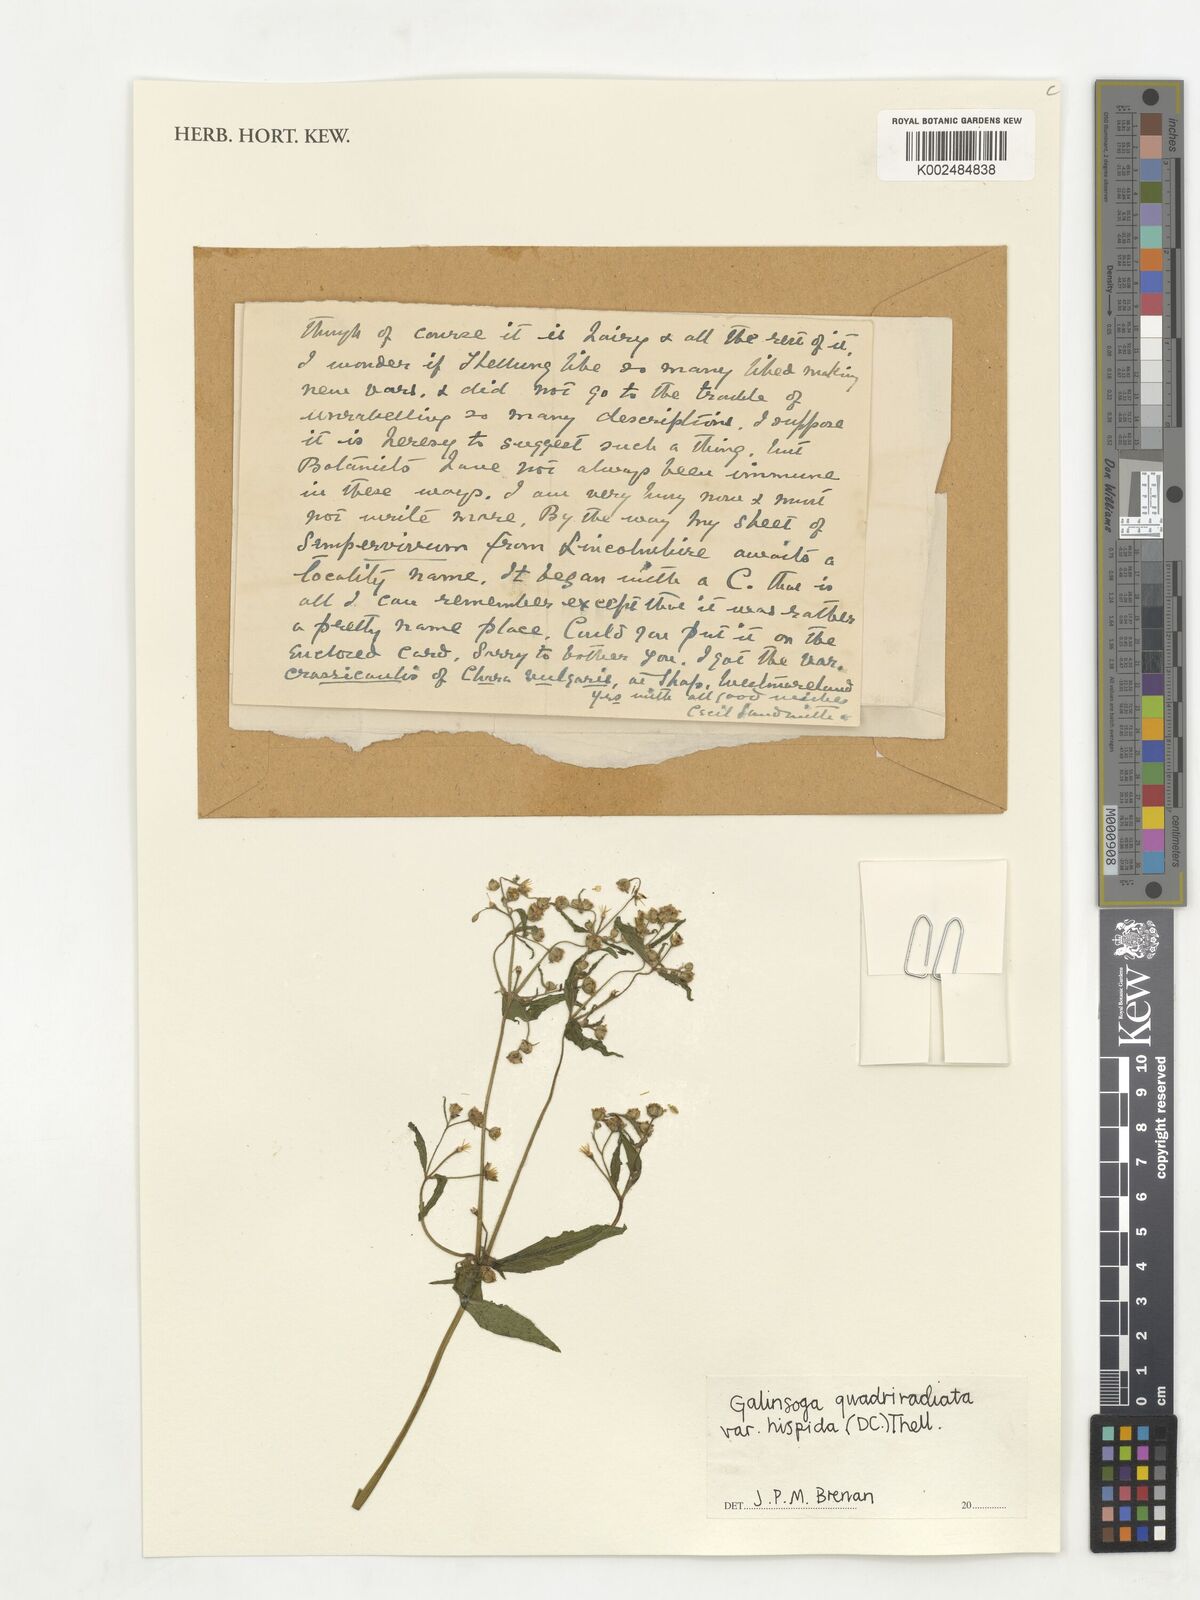 c
HERB. HORT. KEW.
ROYAL BOTANIC GARDENS KEW
K002484838
though of course it is hairy & all the rest of it.
I wonder if Thellung like so many liked making
new vars. & did not go to the trouble of
unravelling so many descriptions. I suppose
it is heresy to suggest such a thing, but
Botanists have not always been immune
in these ways. I am very busy now & must
not write more. By the way my sheet of
Sempervivum from Lincolnshire awaits a
locality name. It began with a C. that is
all I can remember except that it was rather
a pretty name place. Could you put it on the
enclosed card. Sorry to bother you. I got the var.
crassicaulis of Chara vulgaris, at Shap, Westmoreland
Yrs with all good wishes
Cecil Sandwith
Galinsoga quadriradiata
var. hispida (DC.) Thell.
DET. J.P.M. Brenan 20
inches
centimeters
Density
Don Williams
M000908
Royal Botanic Gardens
Kew
copyright reserved
10
9
8
7
6
5
4
3
2
1
0
cm